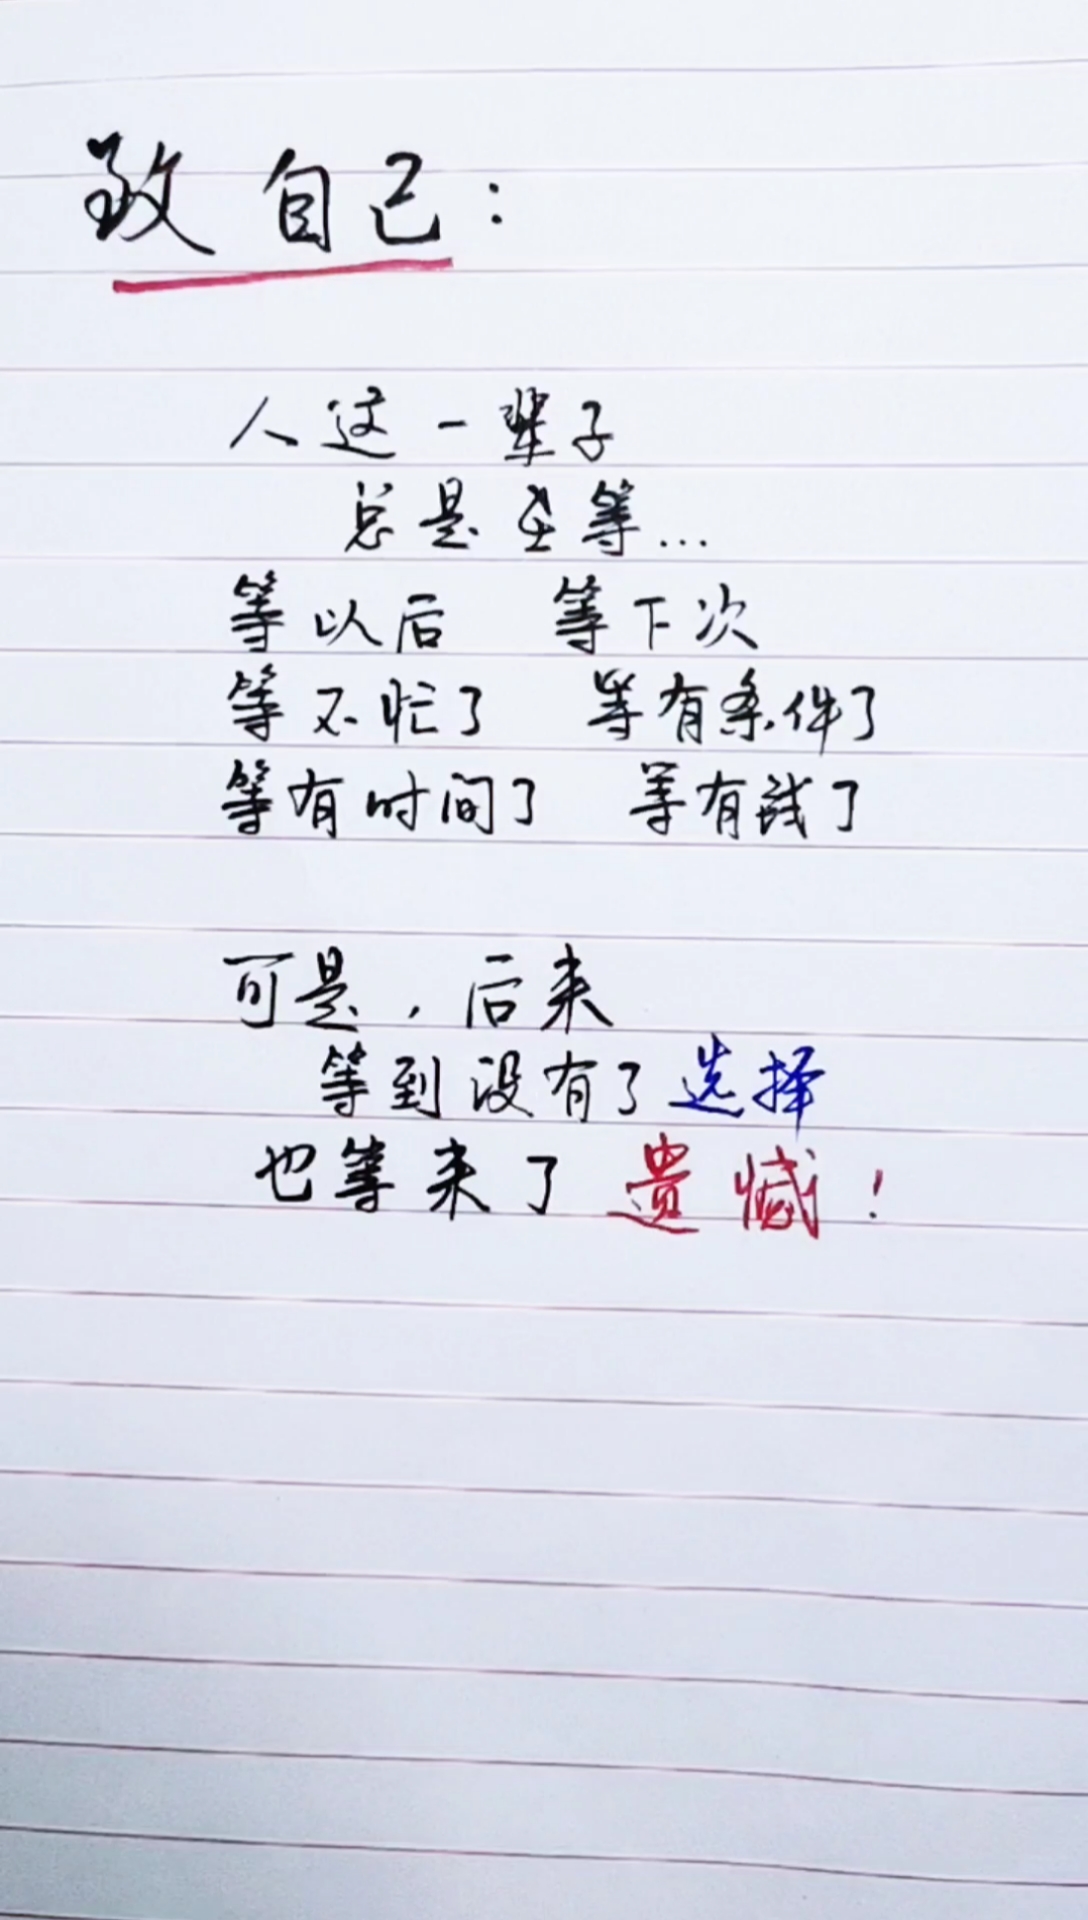 致自己：
人这一辈子
总是在等…
等以后 等下次
等不忙了 等有条件了
等有时间了 等有钱了
可是，后来
等到没有了选择
也等来了遗憾！